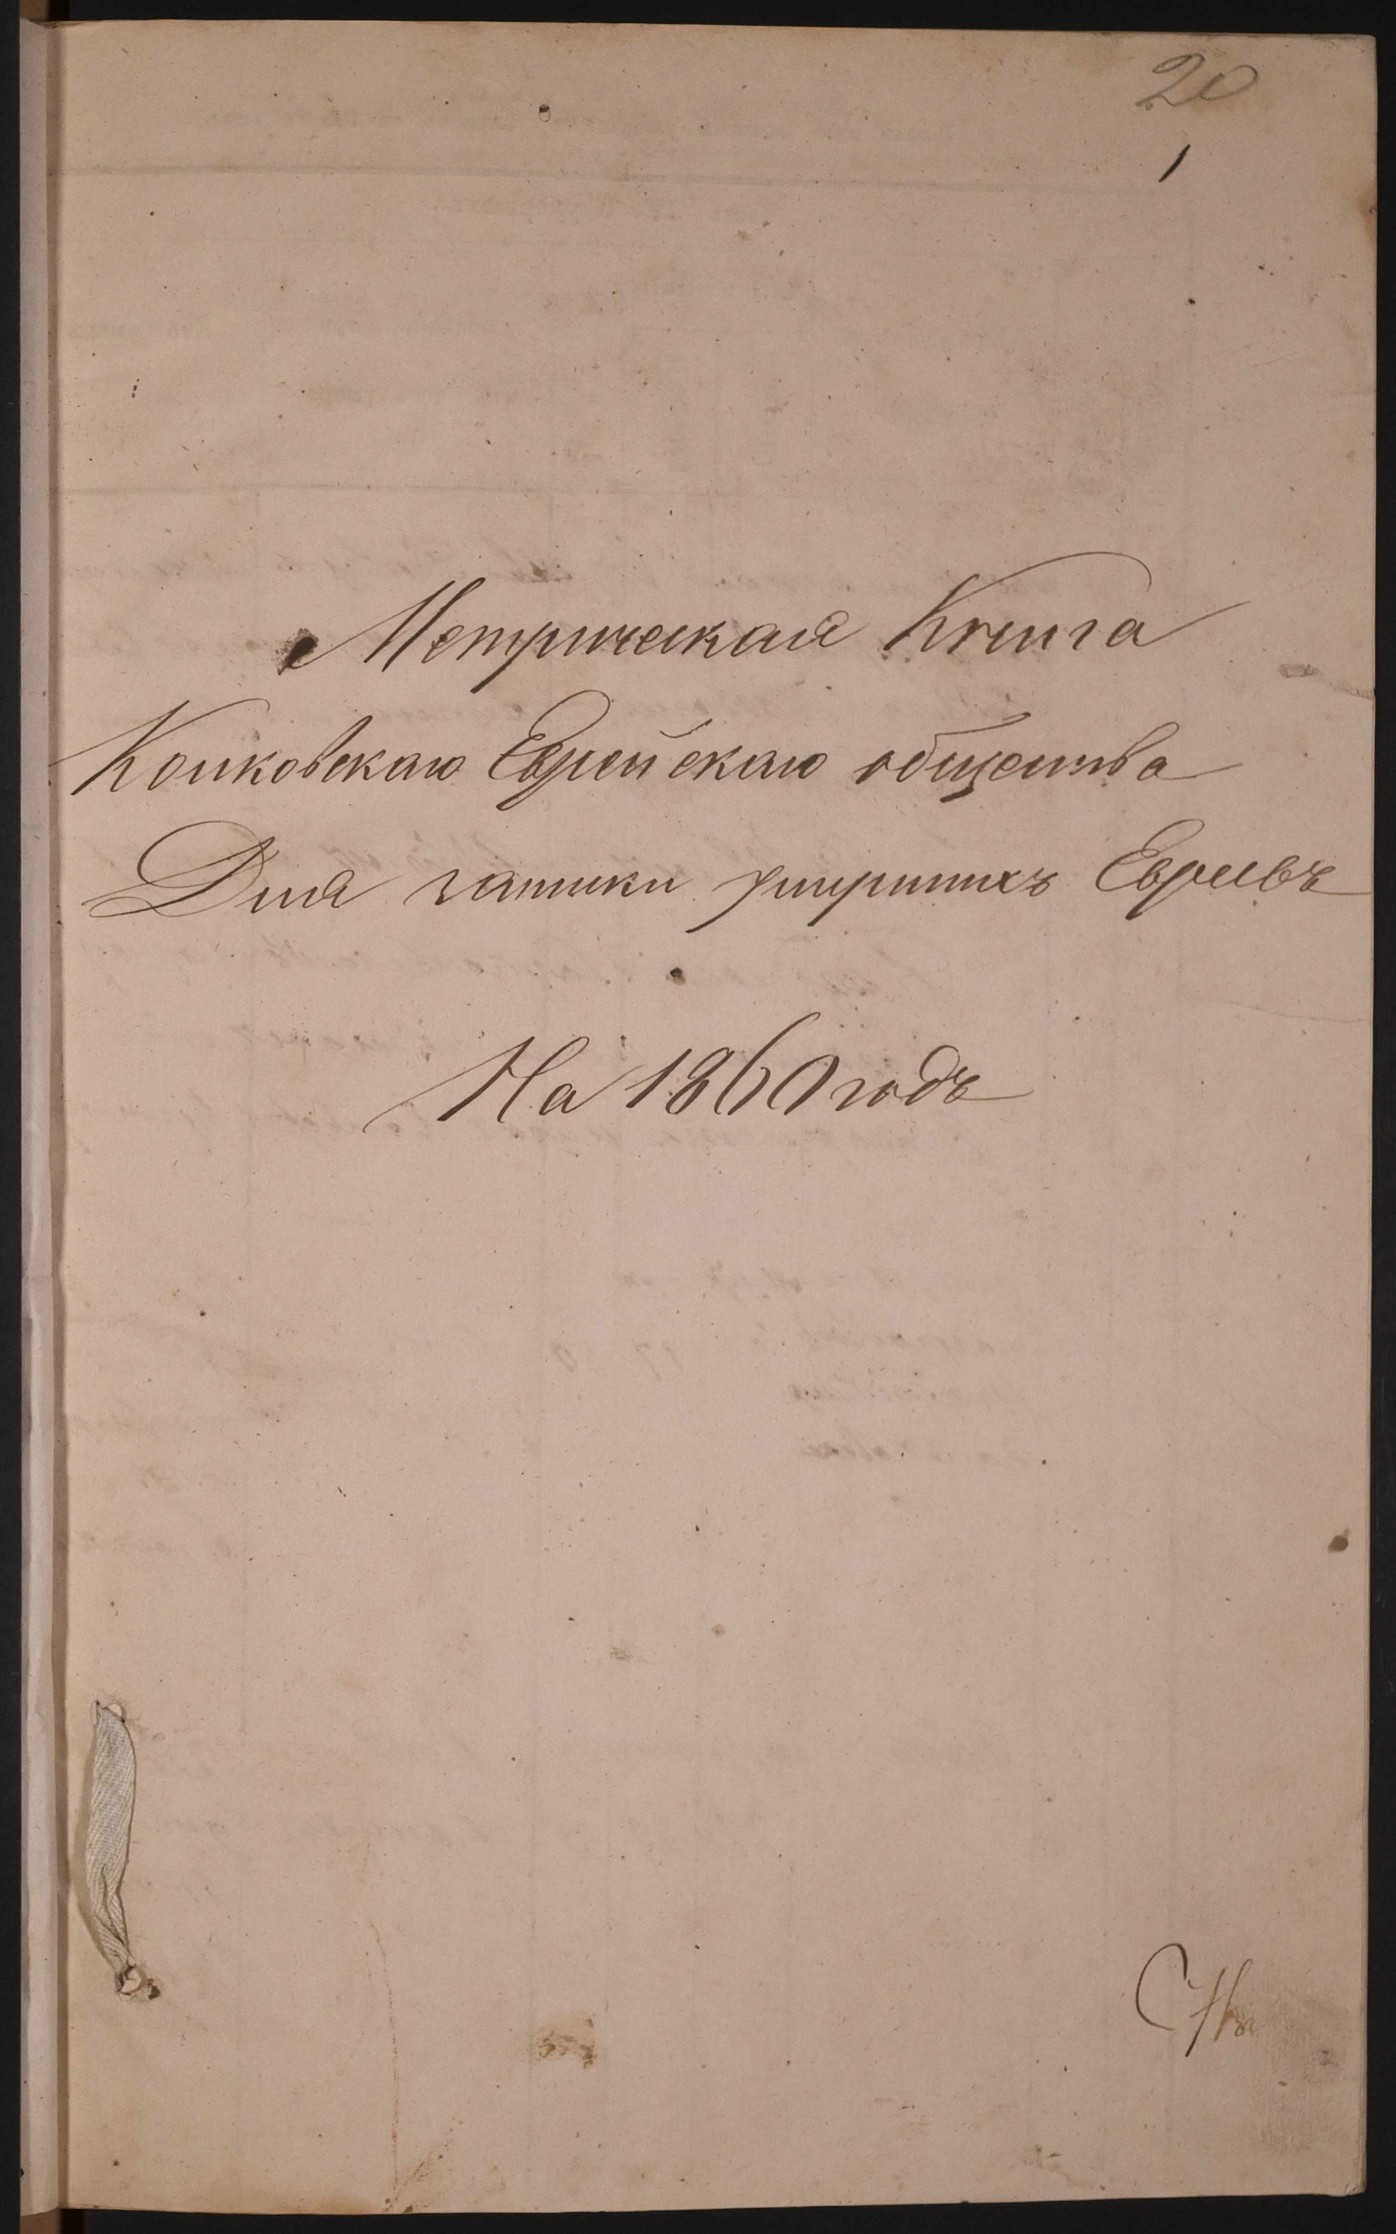 20
1
Метрическая Книга
Колковскаго Еврейскаго общества
Для записки умершихъ Евреевъ
На 1860 годъ